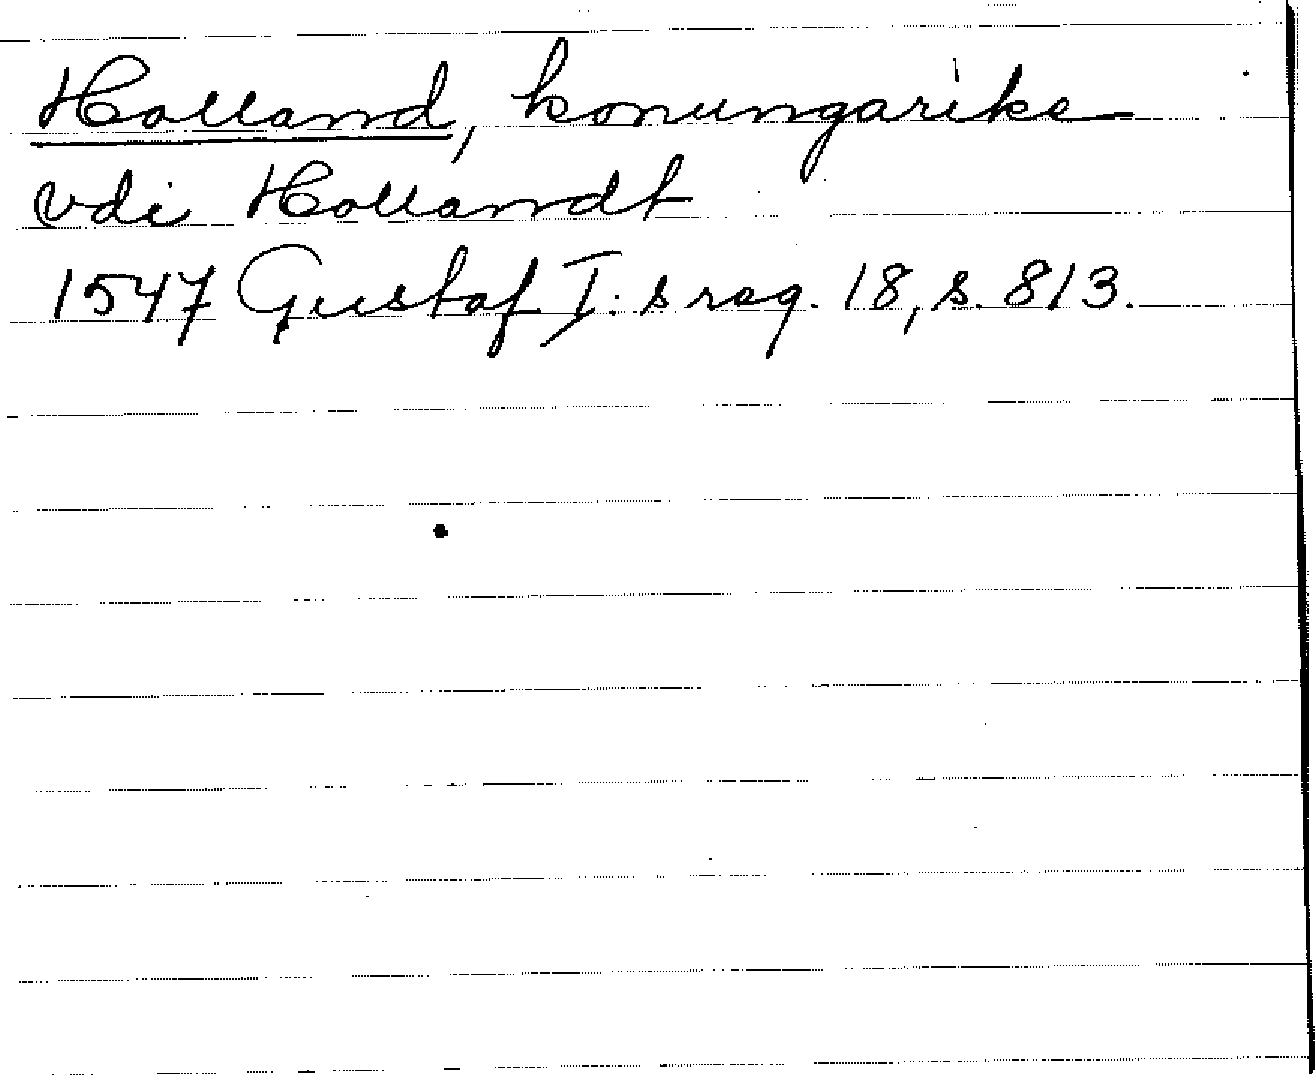 Holland, konungarike
vdi Hollandt
1547 Gustaf I:s reg. 18, s. 813.